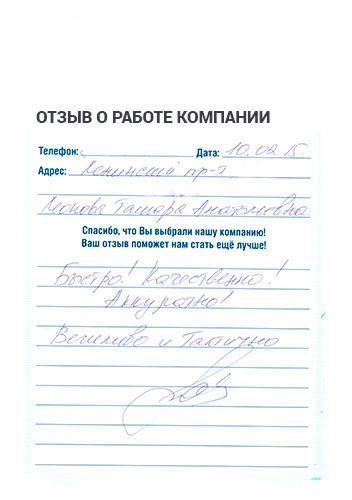 ОТЗЫВ О РАБОТЕ КОМПАНИИ
Телефон: Дата: 10.02.15
Адрес: Ленинский пр-т
Леонова Тамара Анатольевна
Спасибо, что Вы выбрали нашу компанию!
Ваш отзыв поможет нам стать ещё лучше!
Быстро! Качественно!
Аккуратно!
Вежливо и Тактично